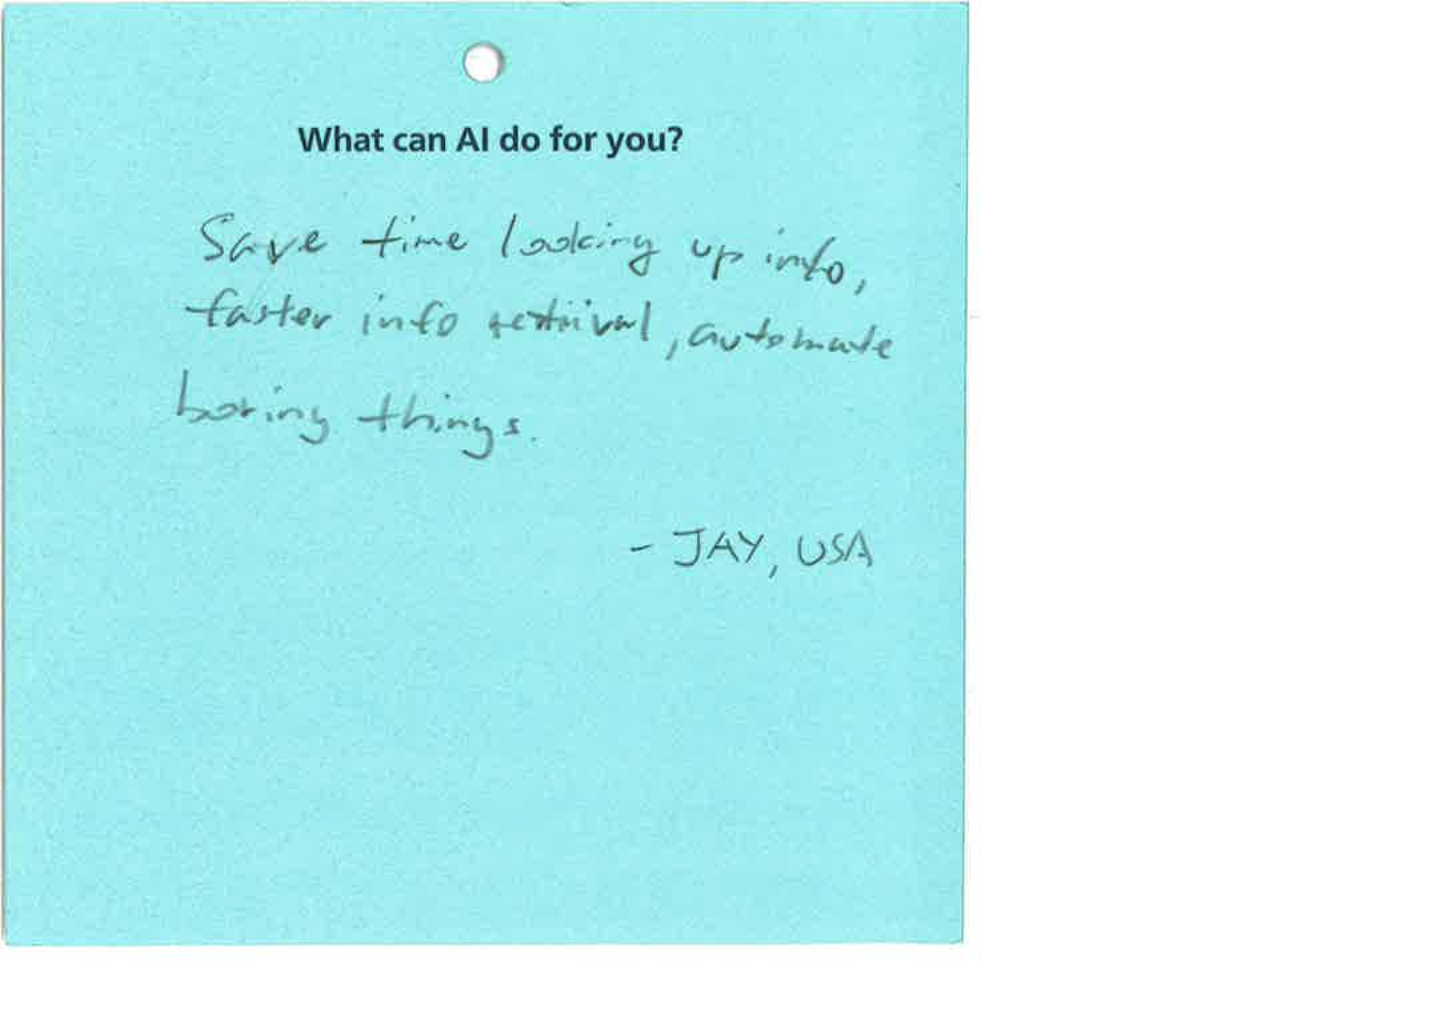 What can AI do for you?
Save time looking up info,
faster info retrival, automate
boring things.
- JAY, USA